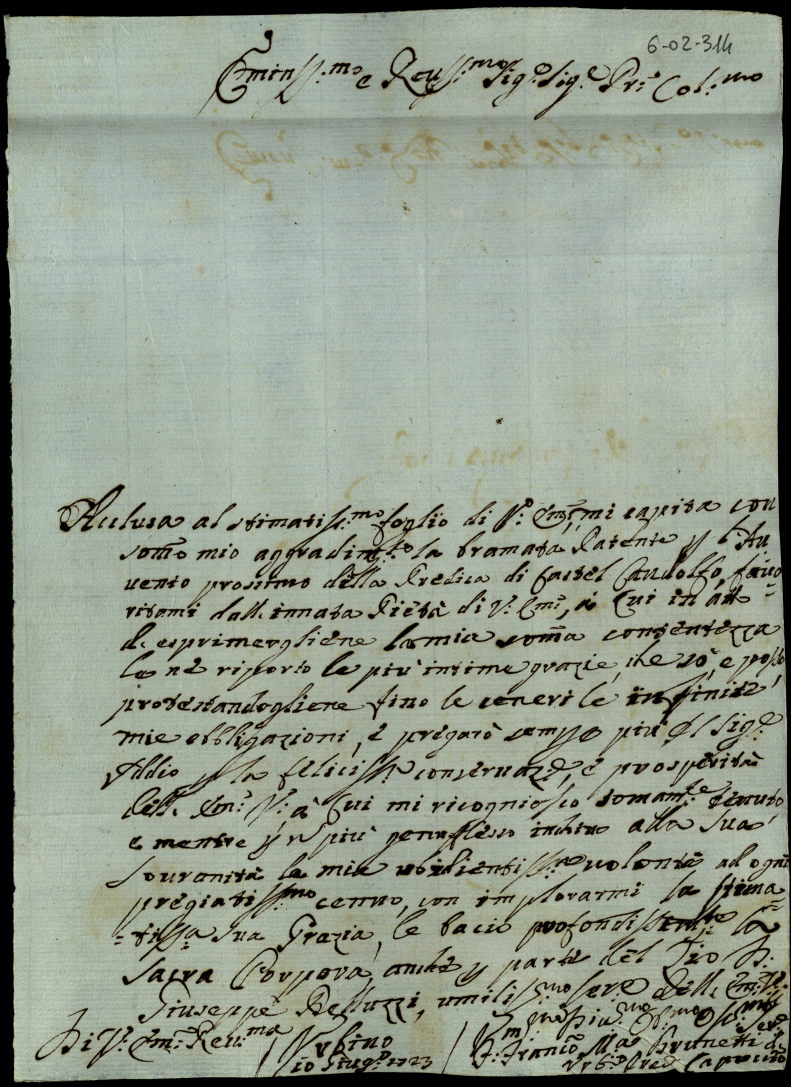 6-02-314
Eminss.mo e Reuss.mo Sig.e Sig.e Pr.e Col.mo
Acclusa al stimatiss.mo foglio di V.a Em.a mi capita con
som̃o mio aggradim.to la bramata Patente p l'Au
uento prossimo della Predica di Castel Gandolfo, fauo
ritami dall'innata Pietà di V.a Em.a, à cui in att
d. esprimergliene la mia som̃a contentezza
le ne riporto le più intime grazie, che sò, e posso
protestandogliene fino le ceneri le infinite
mie obbligazioni, e pregarò sempre più il Sig.e
Iddio p la feliciss.a conseruaz.e, e prosperità
dell. Em.a V.a à cui mi ricognosco somam.te tenuto
e mentre p più genuflesso inchino alla sua
souranità la mia vbidientiss.a uolontà ad ogni
pregiatiss.mo cenno, con implorarmi la stima
tiss.a sua Grazia, le bacio profondissam.te la
Sacra Porpora, anche p parte del Zio D.
Giuseppe Belluzzi, umiliss.mo ser.e dell. Em.a V.a
Di V.a Em.a Reu.ma
Vrbino
10 Giug.o 1723
Vm.mo Diu.mo Obl.mo Ser.e
F. Franc.o Ma Brunetti da
Vrb.o Pred.e Capuccino